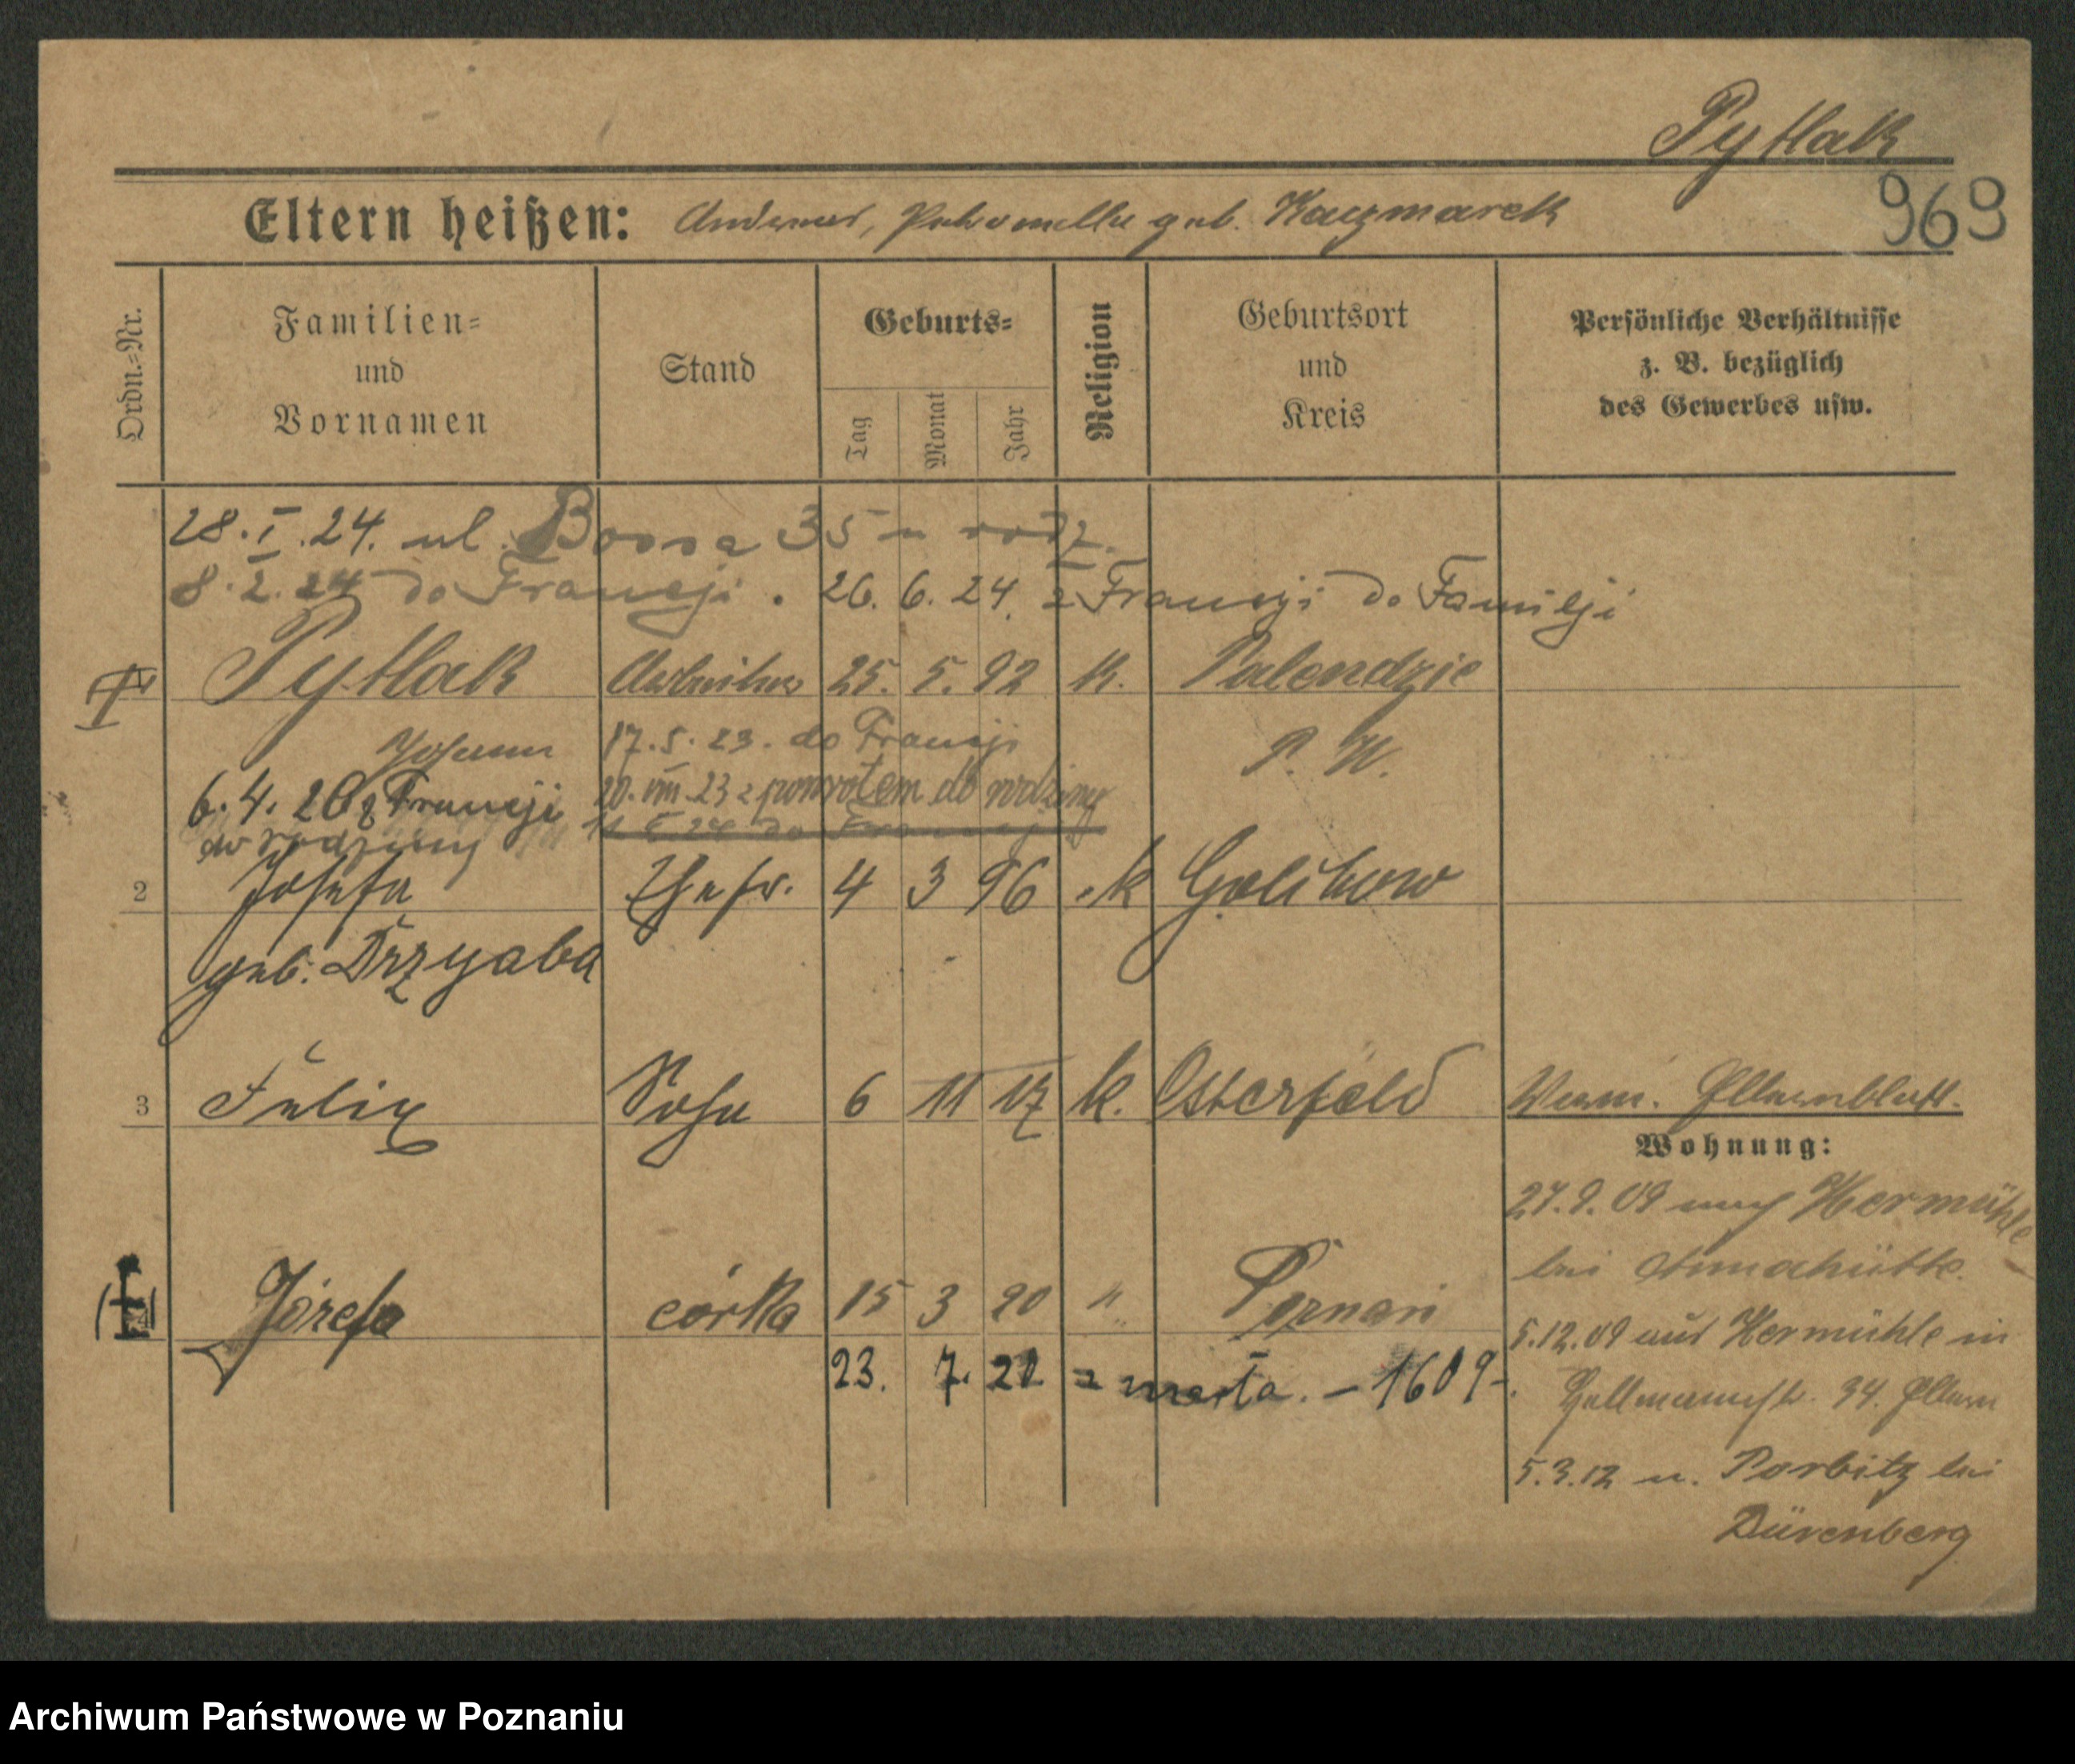 Pytlak
969
Eltern heißen: Andreas, Petronella geb. Kaczmarek
Ordn.=Nr.
Familien=
und
Vornamen
Stand
Geburts=
Tag
Monat
Jahr
Religion
Geburtsort
und
Kreis
Persönliche Verhältnisse
z. B. bezüglich
des Gewerbes usw.
28.I.24. ul. Bossa 35 u rodz.
8.2.24 do Francji. 26.6.24. z Francji do Familji
Pytlak Arbeiter 25. 5. 92 k. Palendzie
Johann 17.5.23. do Francji P. W.
6.4.26 z Francji 20.VIII.23 z powrotem do rodziny
do rodziny 24 do Francji
2 Josefa Ehefr. 4 3 96 k Golikowo
geb. Drzyaba
3 Felix Sohn 6 11 17 k. Osterfeld
Verm. Elternblatt.
Wohnung:
27.9.09 nach Hermühle
bei Annahütte.
Józefa córka 15 3 20 " Poznań
5.12.09 aus Hermühle in
23. 7. 21 z marła. – 1609.
34. Eltern
5.3.12 n. Porbitz bei
Dürenberg
Archiwum Państwowe w Poznaniu